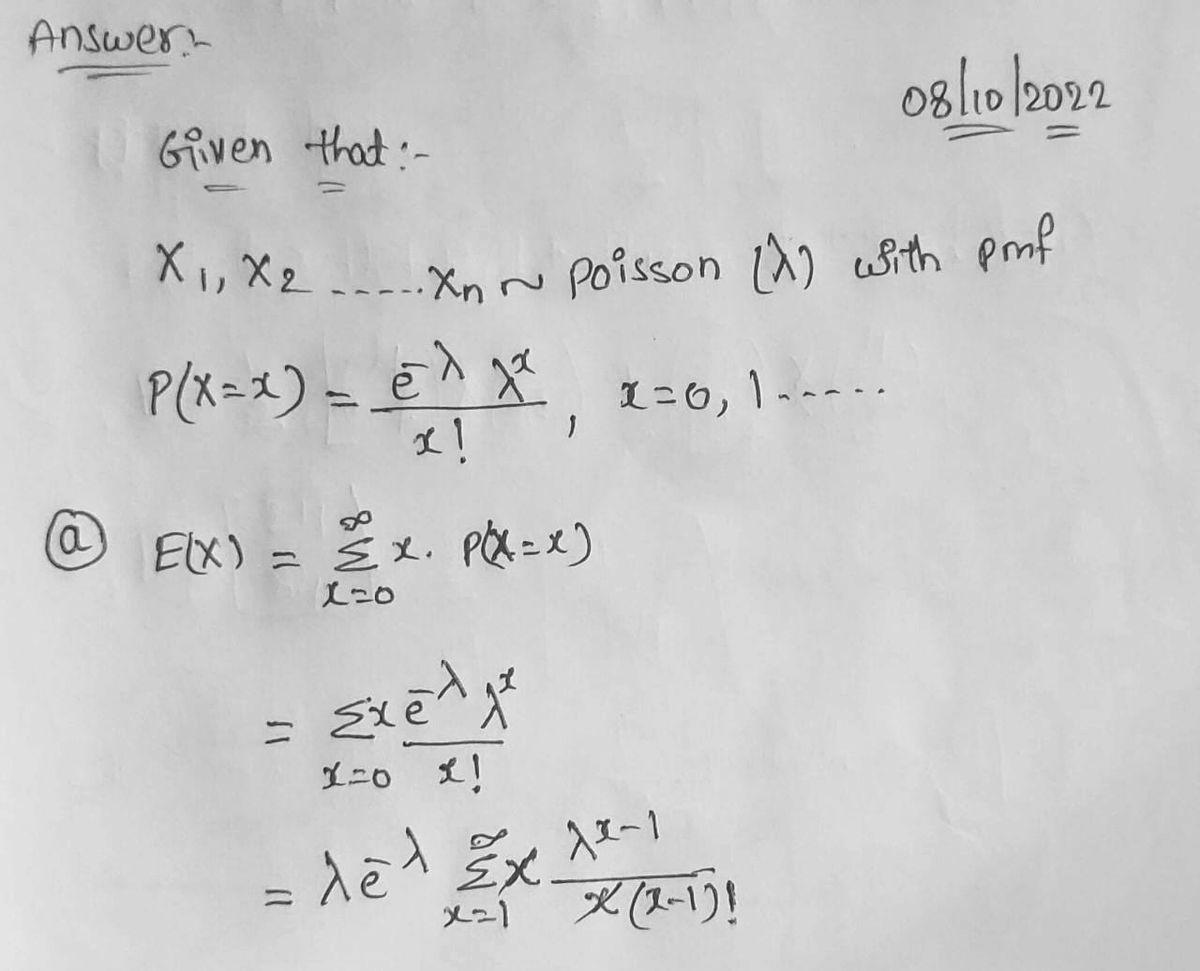 Answer:-
08/10/2022
Given that:-
X₁, X₂ ......Xn ~ poisson (λ) with pmf
P(X=x) = e^-λ λ^x / x! , x=0, 1......
(a) E(X) = ∞Σx=0 x. P(X=x)
= Σx=0 x e^-λ λ^x / x!
= λe^-λ ∞Σx=1 x λ^x-1 / x(x-1)!